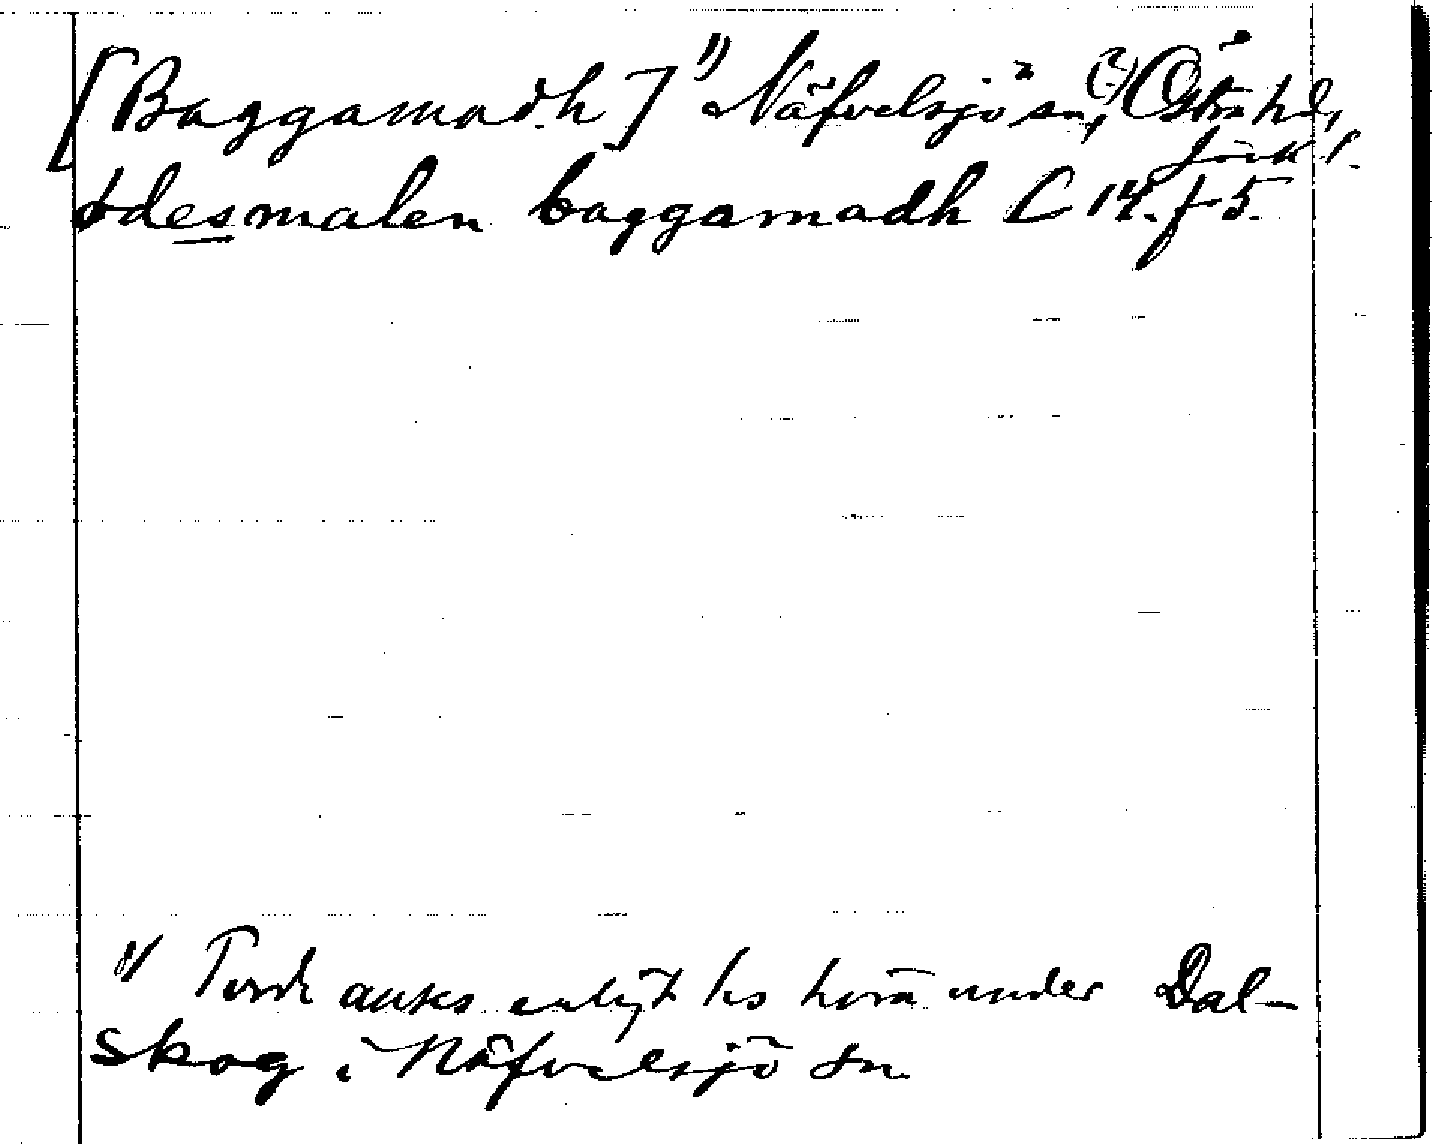 [Baggamadh] 1) Näfvelsjö sn, (?) Östra hd,
Jönk l.
ödesmalen baggamadh C 14. f 5.
1) Torde anses enligt hs höra under Dal-
skog i Näfvelsjö sn